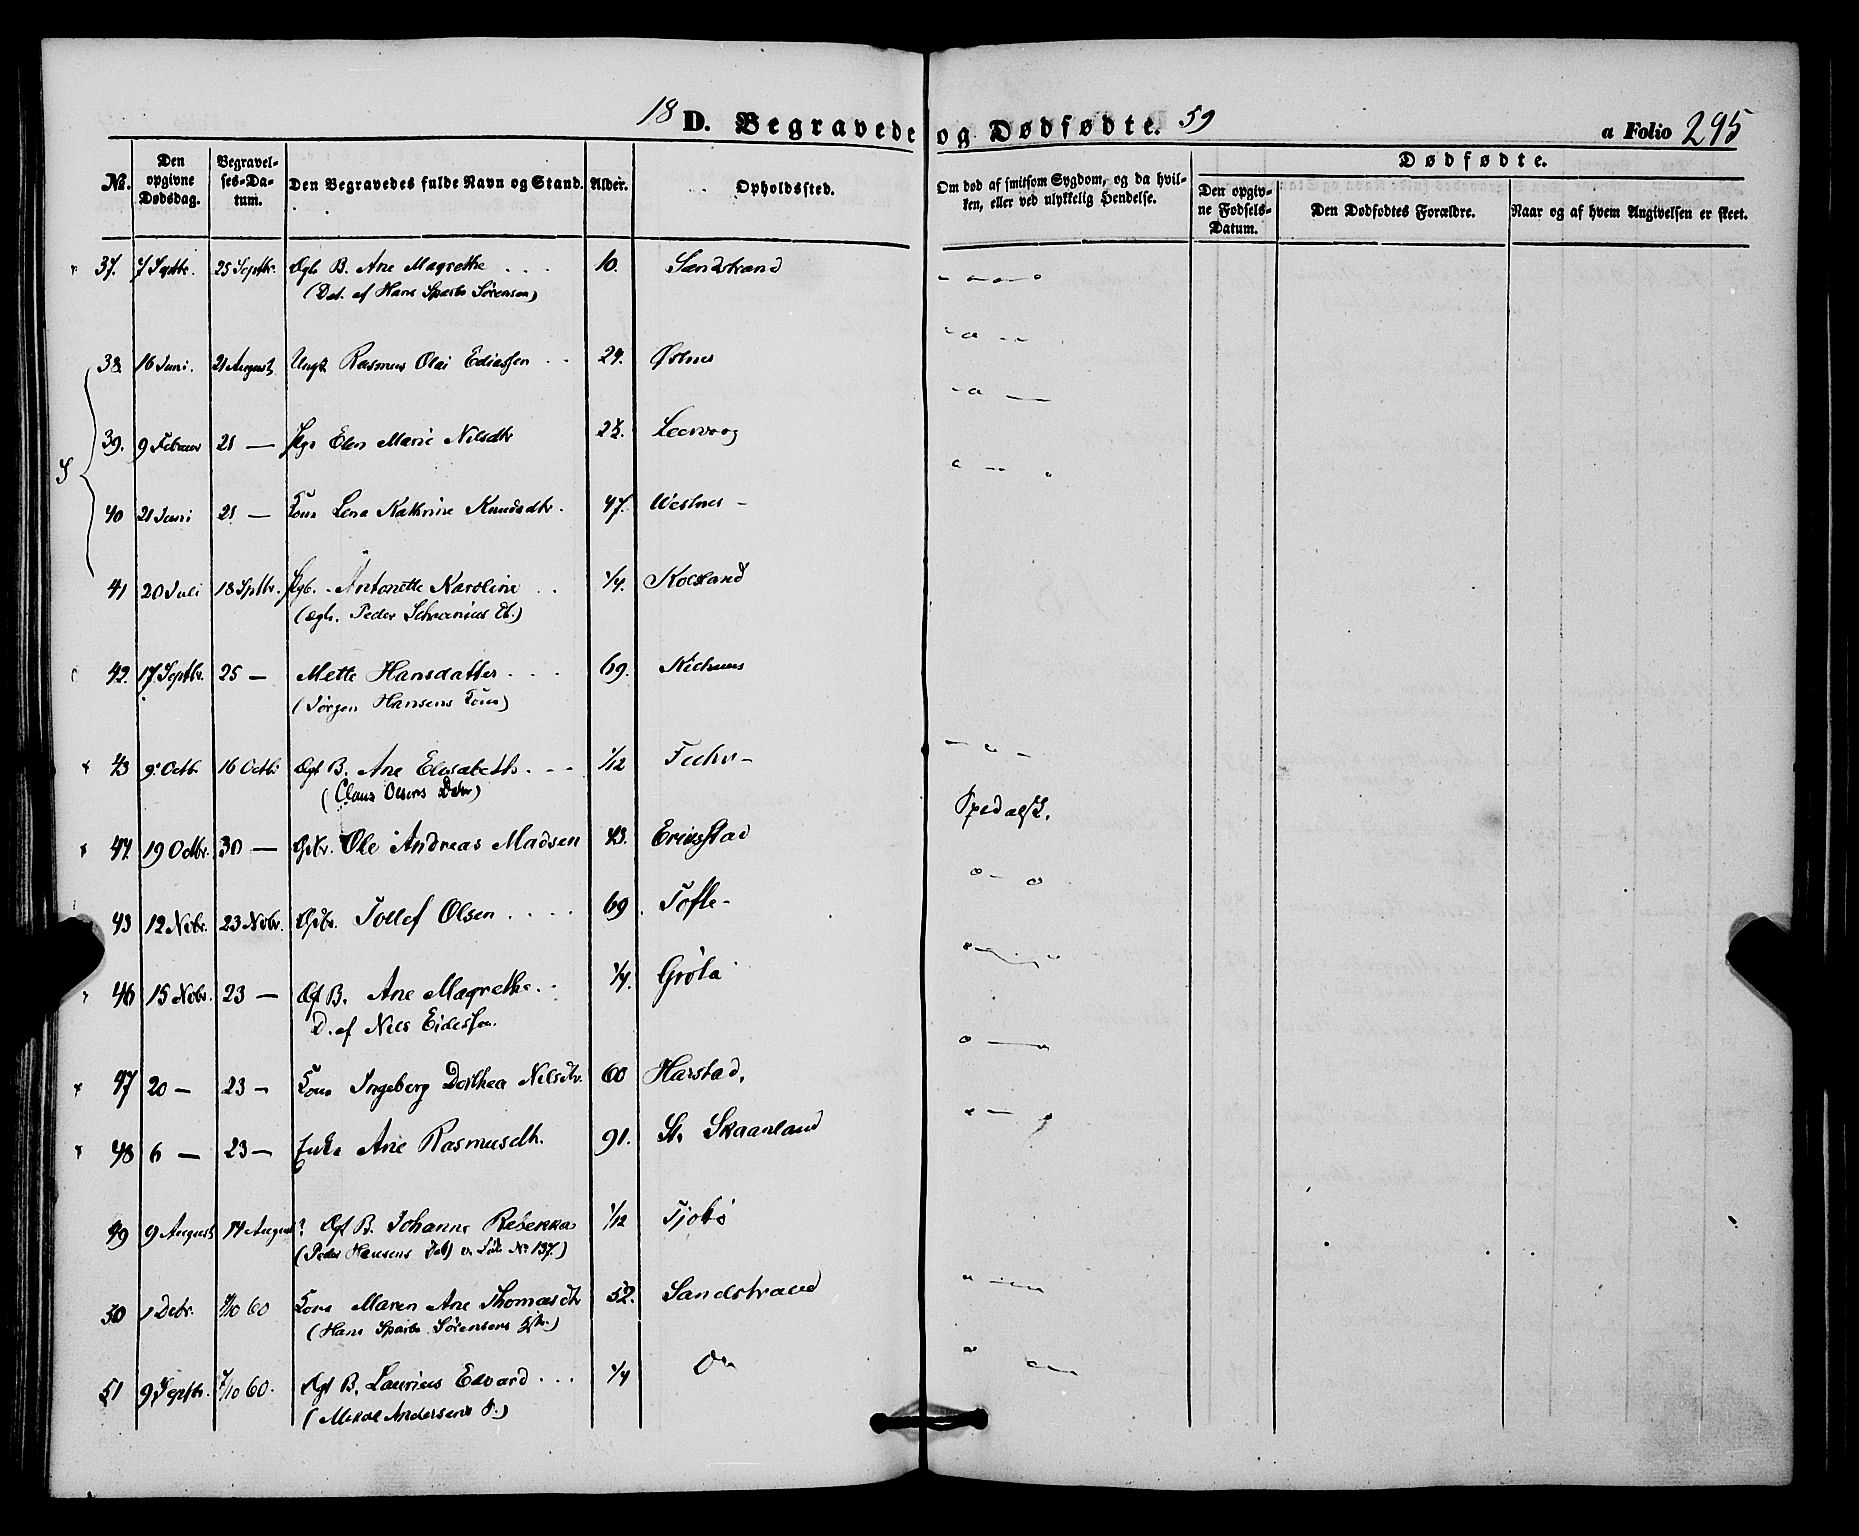 18 D. Begravede og Dødfødte. 59
a Folio 295
No. Den opgivne Dødsdag. Begravelses-Datum. Den Begravedes fulde Navn og Stand. Alder. Opholdssted. Om død af smitsom Sygdom, og da hvilken, eller ved ulykkelig Hendelse. Dødfødte. Den opgivne Fødsels-Datum. Den Dødfødtes Forældre. Naar og af hvem Angivelsen er skeet.
37. 7 Septbr. 25 Septbr. Ægt B. Ane Magrethe . . . 10. Sandstrand
(Dat. af Hans Sparbo Sørensen)
38. 16 Juni. 21 August Rasmus Olai Ediassen . . 24. Østnes
39. 9 Februar 21 — Elen Marie Nilsdtr Leervaag
40 21 Juni 21 — Kone Lena Kathrine Knudsdtr. 47. Westnes –
41 20 Juli 18 Septbr. Antonette Karoline . . 1/4.
(ægt. Peder)
42. 17 Septbr. 25 — Mette Hansdatter . . . 69.
(Jørgen Hansens Kone)
43 9. Octb. 16 Octb. Ægt B. Ane Elisabeth . - - 1/12
(Claus Olsens Datr)
44. 19 Octbr. 30 — Ole Andreas Madsen 43. Spedalsk.
45 12 Nvbr. 23 Nvbr. Tollef Olsen . . . . 69 Tofte -
46 15 Nvbr. 23 — Æg B. Ane Magrethe . . 1/4. Grøta
D. af Nils Eidessen.
47 20 — 23 — Kone Ingeborg Dorthea Nilsdtr. 60 Harstad.
48 6 — 23 — Enke Ane Rasmusdtr. 91. St. Skaanland
49 9 August 14 August Ægt B. Johanne Rebekka 1/12
(Peder Hansens No 137.)
50 1 Debr. 7/10 60 Kone Maren Ane Thomasdtr 52. Sandstrand
(Hans Sparbo Sørensens)
51 9 Septbr. 7/10 60. Ægt B. Laurius Edvard . . . 1/4
(Mikal Andersens S.)